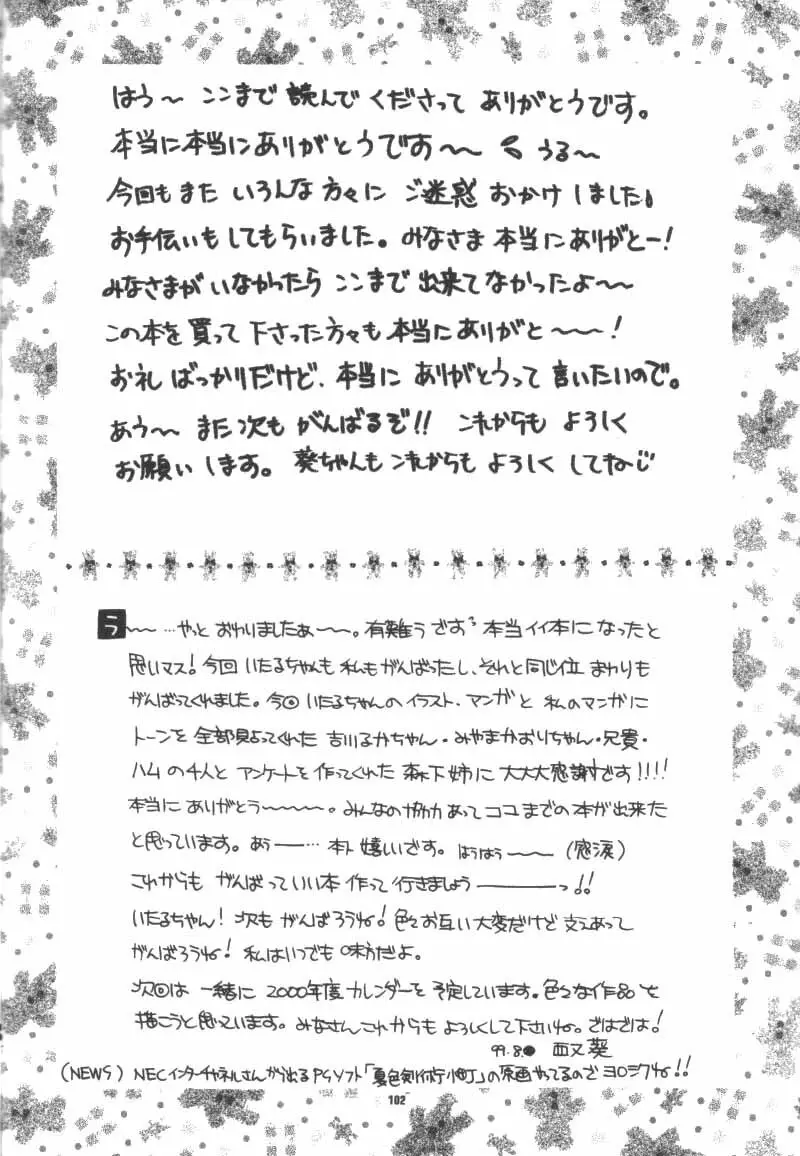 はう〜 ここまで 読んで くださって ありがとうです。
本当に本当にありがとうですぉ〜〜 うる〜
今回もまた いろんな 方々に ご迷惑 おかけしました
お手伝いもしてもらいました。みなさま 本当にありがとー!
みなさまが いなかったら ここまで 出来てなかったよ〜〜
この本を 買って 下さった方々も 本当にありがと〜〜!
お礼 ばっかりだけど、本当に ありがとうって 言いたいので。
あう〜 また 次も がんばるぞ!! これからも よろしく
お願いします。 葵ちゃんも これからも よろしく してね
う〜〜…やっと おわりましたぁ〜〜。有難うざすっ 本当イイ本になったと
思いマス! 今回 いたるちゃんも 私もがんばったし、それと同じ位 まわりも
がんばってくれました。今回 いたるちゃんの イラスト、マンガと 私のマンガに
トーンを 全部貼ってくれた 吉川るかちゃん・みやまかおりちゃん・兄貴・
ハム の4人と アンケートを 作ってくれた 森下 姉に 大大大感謝です!!!!
本当に ありがとう〜〜〜〜。みんなの協力 あって ココまでの本が出来た
と思っています。あぅ――… 嬉しいざす。はうはう〜〜 (感涙)
これからも がんばって いい本 作って 行きましょう――――っ!!
いたるちゃん! 次も がんばろうね! 色々お互い大変だけど 支えあって
がんばろうね! 私はいつでも 味方だよ。
次回は 一緒に 2000年度 カレンダーを 予定しています。色々な作品を
描こうと思っています。みなさんこれからも よろしくして下さいね。ではでは!
99.8. 葵
(NEWS) NECインターチャネルさんから出る PSソフト「夏色剣術小町」の原画やってるので ヨロシクね!!
102